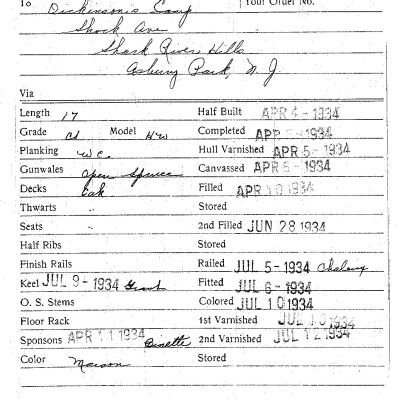 To Dickinson's Camp Your Order No.
Shock Ave
Shark River Hills
Asbury Park, N J
Via
Length 17 Half Built APR 4 - 1934
Grade Model HW Completed APR - 1934
Planking W.C. Hull Varnished APR 5 - 1934
Gunwales Open Spruce Canvassed APR 6 - 1934
Decks Oak Filled APR 10 1934
Thwarts " Stored
Seats " 2nd Filled JUN 28 1934
Half Ribs Stored
Finish Rails Railed JUL 5 - 1934
Keel JUL 9 - 1934 Fitted JUL 6 - 1934
O. S. Stems Colored JUL 10 1934
Floor Rack 1st Varnished JUL 1934
Sponsons APR 11 1934 2nd Varnished JUL 12 1934
Color Maroon Stored